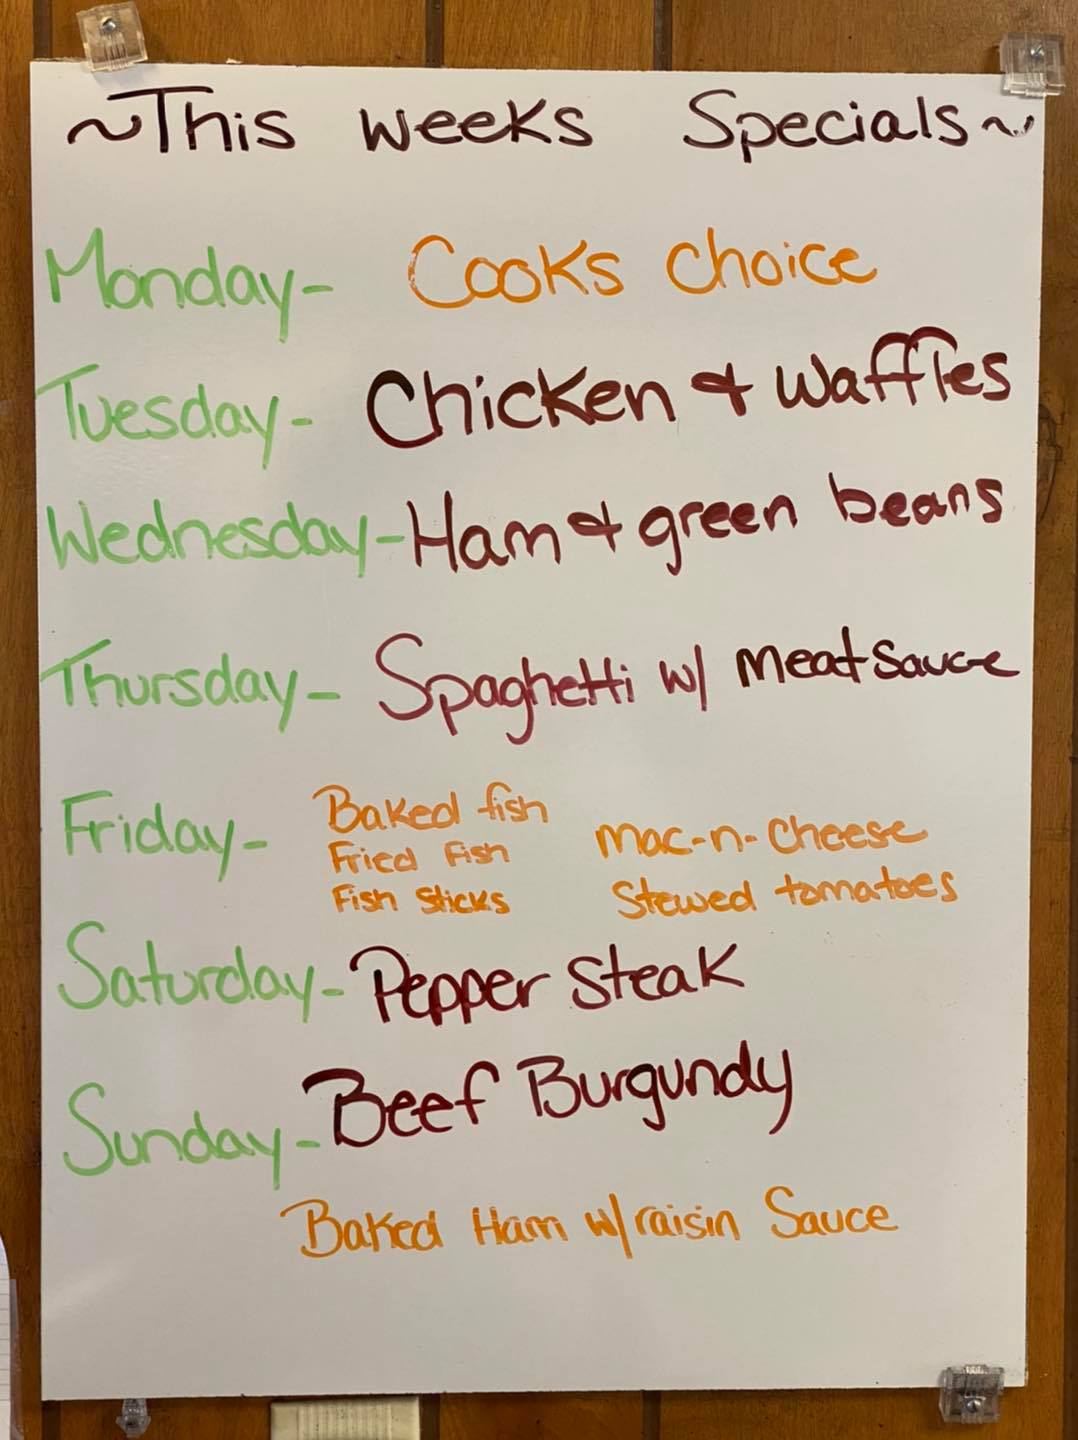 ~This weeks Specials~
Monday- Cooks choice
Tuesday- Chicken & Waffles
Wednesday- Ham & green beans
Thursday- Spaghetti w/ Meat Sauce
Friday- Baked fish
Fried Fish
Fish Sticks
Mac-n-Cheese
Stewed tomatoes
Saturday- Pepper Steak
Sunday- Beef Burgundy
Baked Ham w/ raisin Sauce